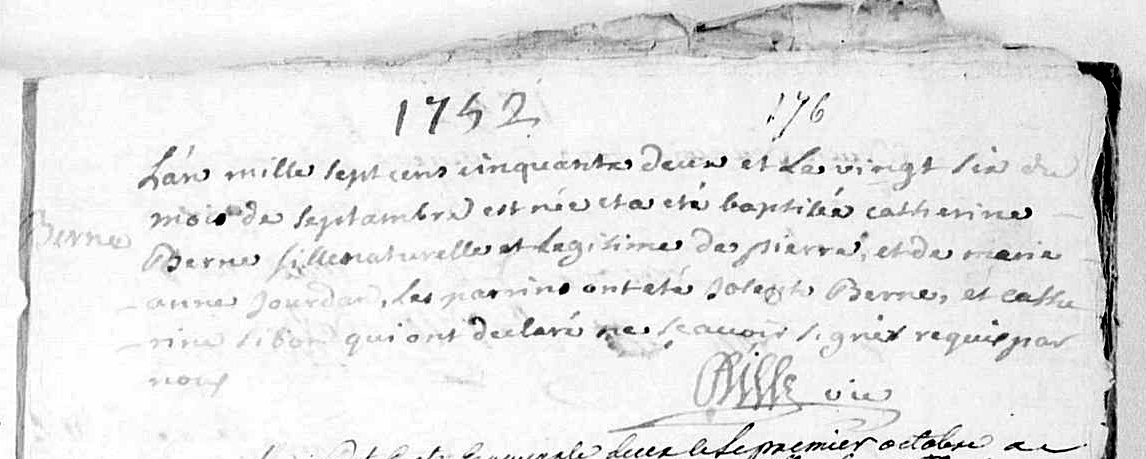 1752 176
L'an mille sept cens cinquante deux et Le vingt six du
mois de septambre est née et a eté baptisée catherine
Berne
Berne fille naturelle et Legitime de pierre, et de marie
anne Jourdan, les parrins ont eté Joseph Berne, et cathe
rine sibon qui ont declaré ne sçavoir signer requis par
nous
vic
premier octobre